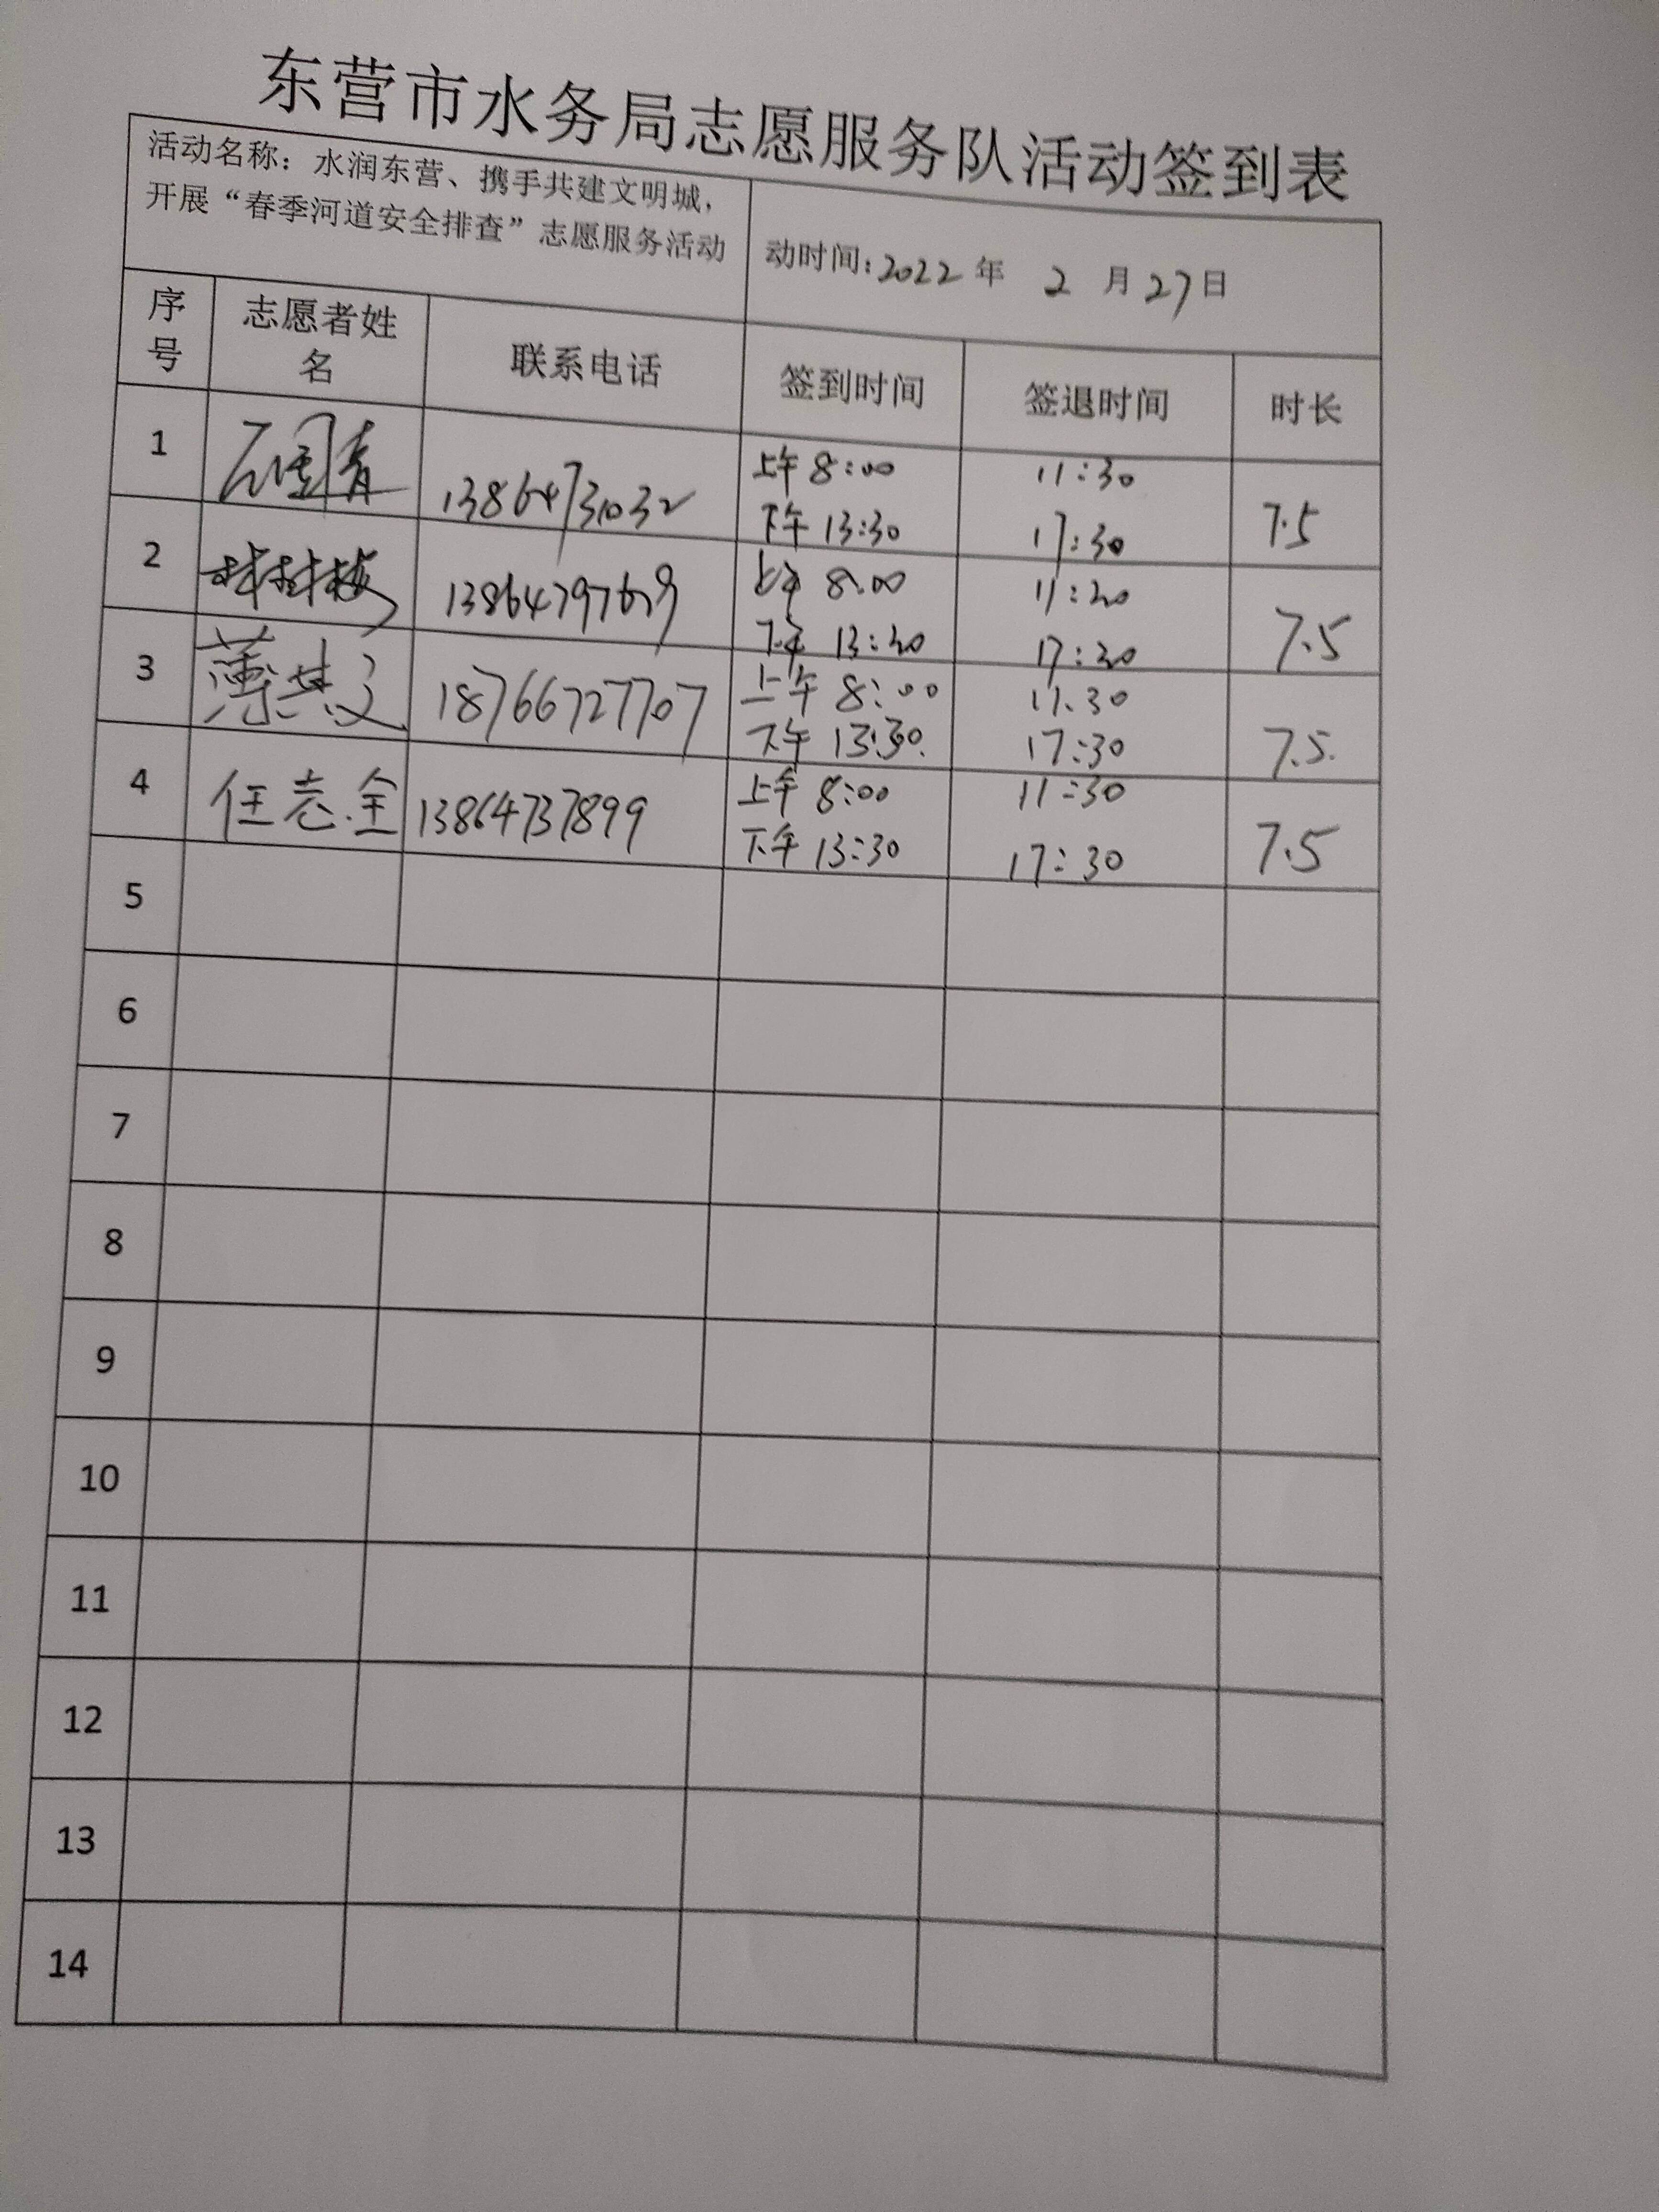 东营市水务局志愿服务队活动签到表
活动名称：水润东营、携手共建文明城，
开展“春季河道安全排查”志愿服务活动
动时间：2022年 2 月27日
序号 志愿者姓名 联系电话 签到时间 签退时间 时长
1 石国青 13864731032 上午 8:00 11:30 7.5
下午 13:30 17:30
2 上午 8:00 11:30 7.5
下午 13:30 17:30
3 薄其文 18766727707 上午 8:00 11:30 7.5
下午 13:30 17:30
4 任志全 13864737899 上午 8:00 11:30 7.5
下午 13:30 17:30
5
6
7
8
9
10
11
12
13
14